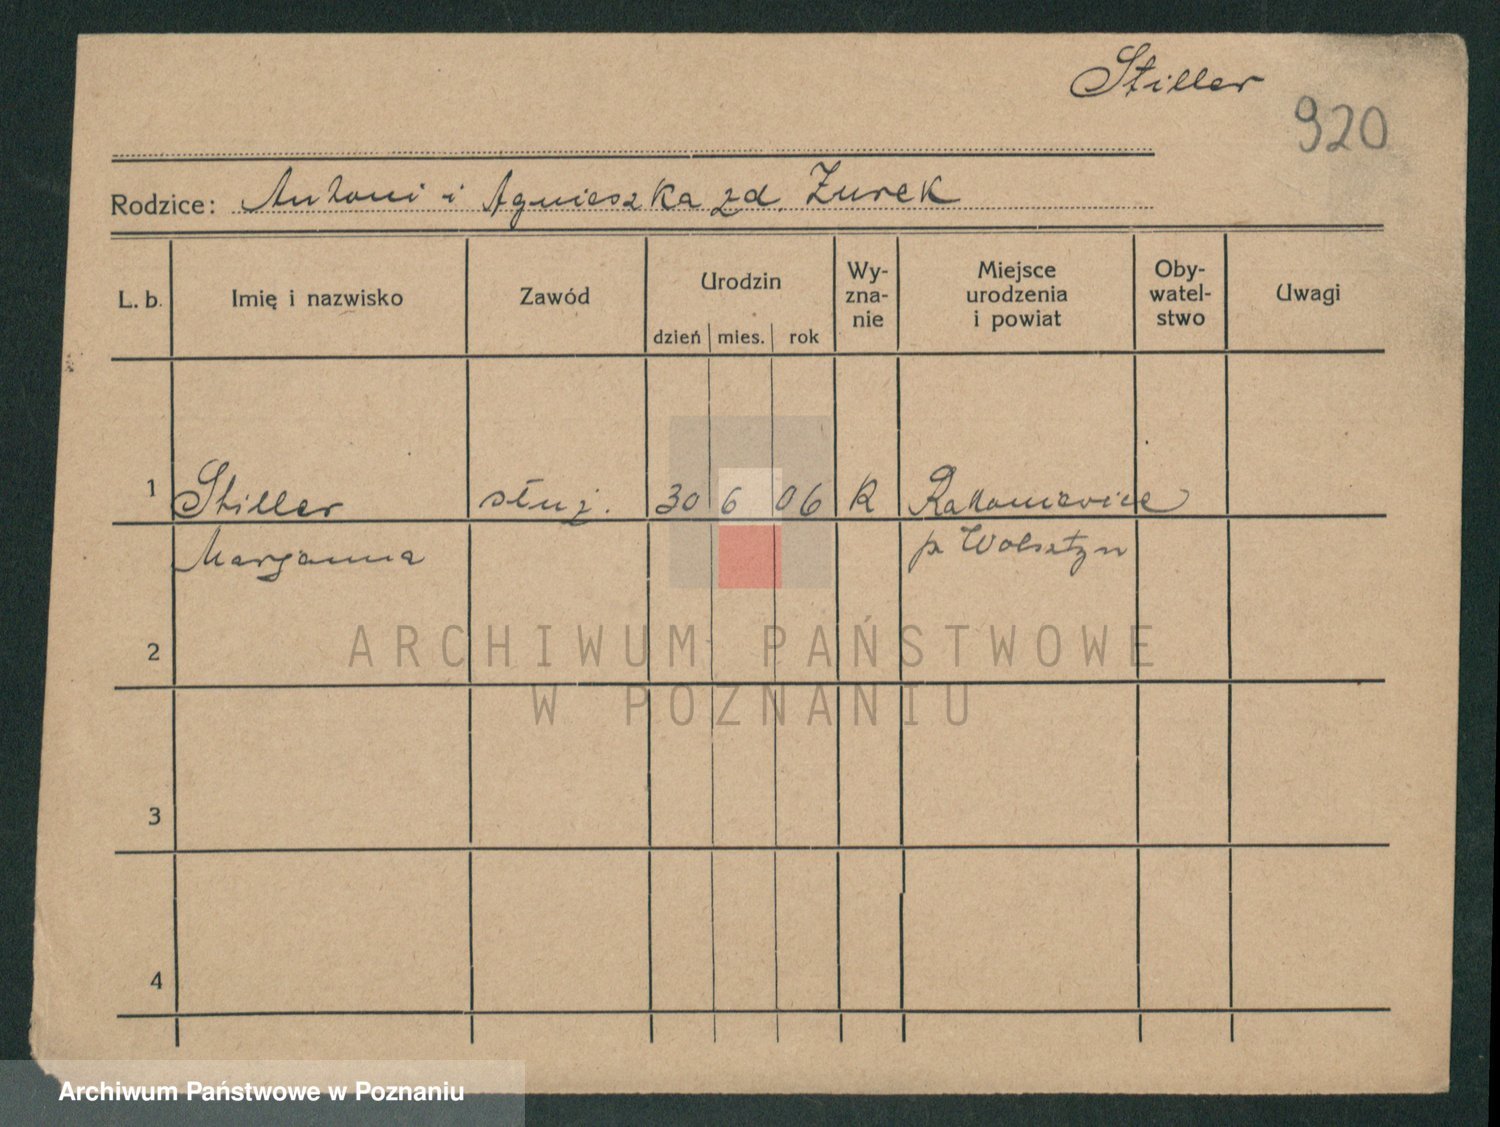 Stiller
920
Rodzice: Antoni i Agnieszka zd. Żurek
L. b.
Imię i nazwisko
Zawód
Urodzin
dzień mies. rok
Wy-
zna-
nie
Miejsce
urodzenia
i powiat
Oby-
watel-
stwo
Uwagi
1 Stiller służ. 30 6 06 R Rakoniewice
Marjanna p. Wolsztyn
2
3
4
ARCHIWUM PAŃSTWOWE
W POZNANIU
Archiwum Państwowe w Poznaniu